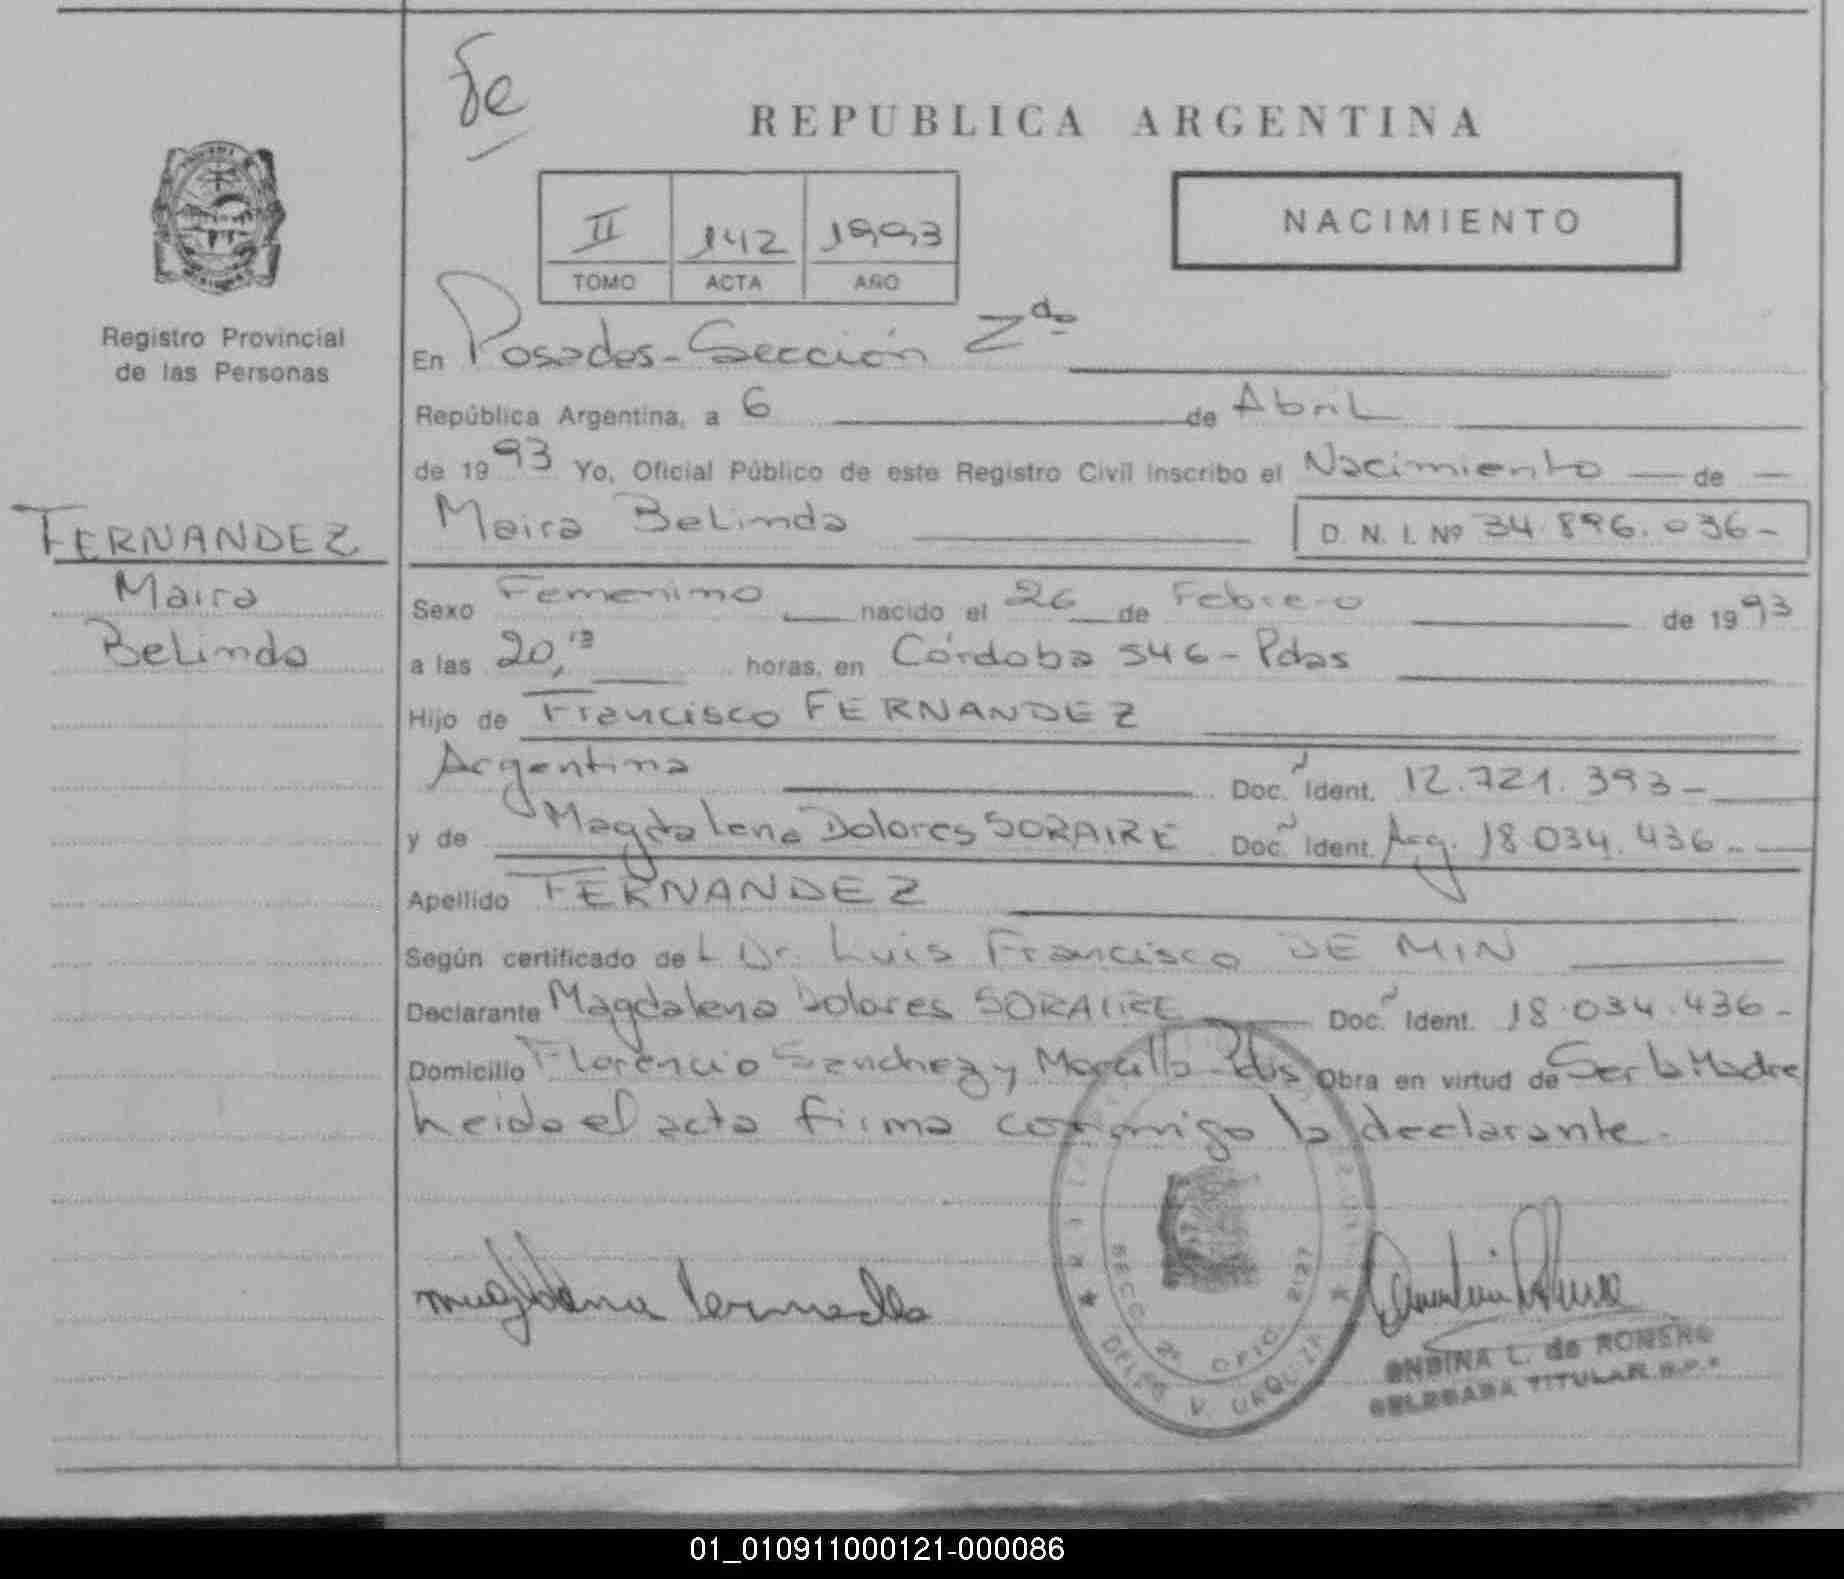 Fe
REPUBLICA ARGENTINA
II 142 1993
TOMO ACTA AÑO
NACIMIENTO
Registro Provincial
de las Personas
En Posadas-Sección 2da
República Argentina, a 6 de Abril
de 1993 Yo, Oficial Público de este Registro Civil inscribo el Nacimiento de
Maira Belinda D. N. I. Nº 34.896.036-
FERNANDEZ
Maira
Belinda
Sexo Femenino nacido el 26 de Febrero de 1993
a las 20, horas, en Córdoba 546-Pdas
Hijo de Francisco FERNANDEZ
Argentina Doc. Ident. 12.721.393-
y de Magdalena Dolores SORAIRE Doc. Ident. Arg. 18.034.436-
Apellido FERNANDEZ
Según certificado del Dr. Luis Francisco DE MIN
Declarante Magdalena Dolores SORAIRE Doc. Ident. 18.034.436-
Domicilio Florencio Sanchez y Pdas Obra en virtud de Ser la Madre
Leida el acta firma conmigo la declarante.
SECC. 2ª OFIC. 2127
DELFO V. URQUIZA
ONDINA L. de ROMERO
DELEGADA TITULAR R.P.P.
01_010911000121-000086